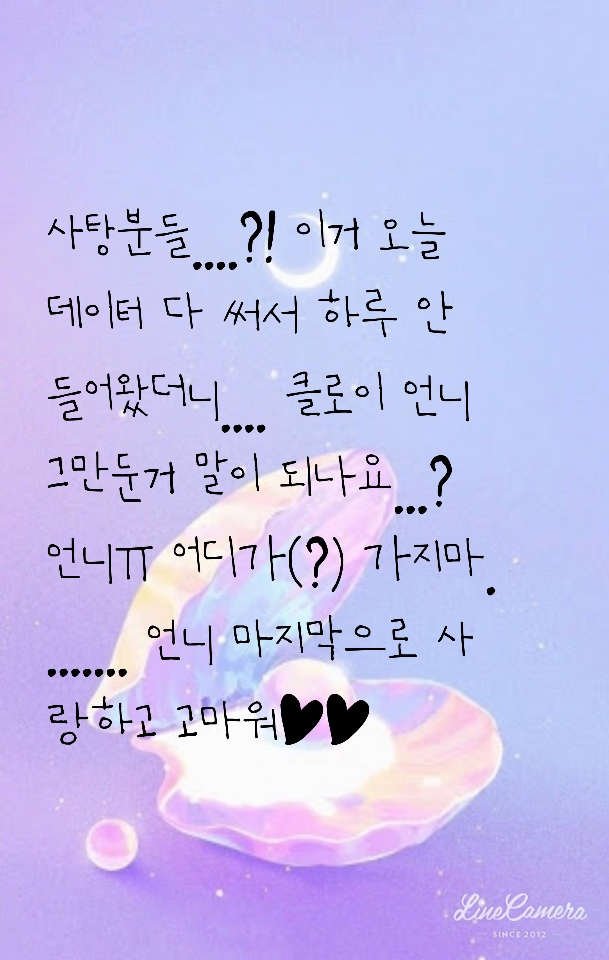 사탕분들....?! 이거 오늘
데이터 다 써서 하루 안
들어왔더니.... 클로이 언니
그만둔거 말이 되나요...?
언니ㅠ 어디가(?) 가지마.
....... 언니 마지막으로 사
랑하고 고마워♥♥
LineCamera
SINCE 2012